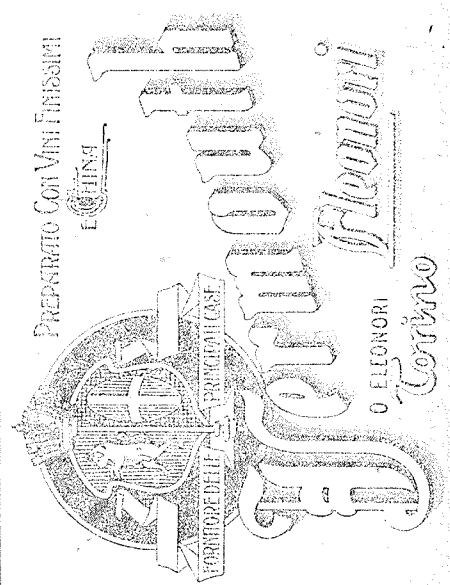 PREPARATO CON VINI FINISSIMI
E CHINA
FORNITORE DELLE PRINCIPALI CASE
Vermouth
Eleonori
O ELEONORI
Torino